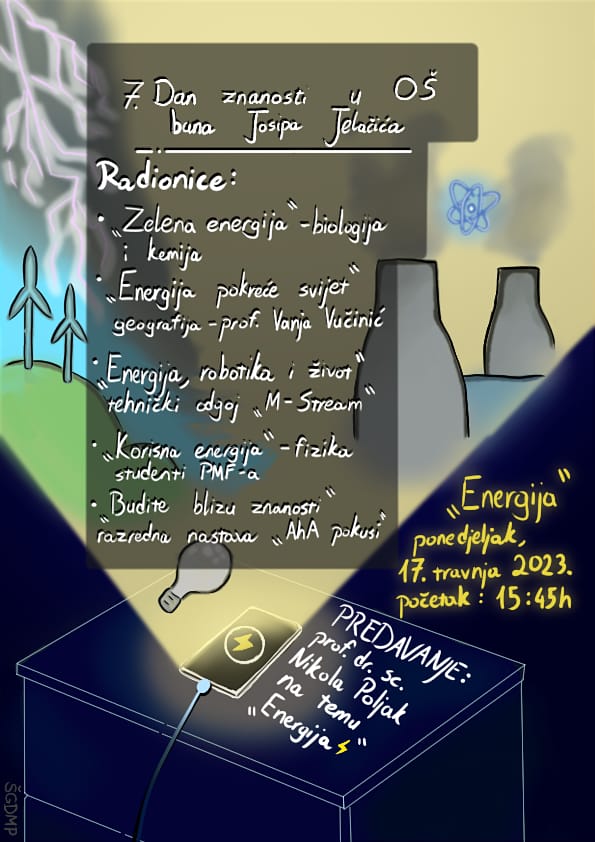 7. Dan znanosti u OŠ
bana Josipa Jelačića
Radionice:
• „Zelena energija" - biologija
i kemija
• „Energija pokreće svijet"
geografija - prof. Vanja Vučinić
• „Energija, robotika i život"
tehnički odgoj „M-Stream"
• „Korisna energija" - fizika
studenti PMF-a
• „Budite blizu znanosti"
razredna nastava „AhA pokusi"
„Energija"
ponedjeljak,
17. travnja 2023.
početak: 15:45h
PREDAVANJE:
prof. dr. sc.
Nikola Poljak
na temu
„Energija⚡"
ŠGDMP